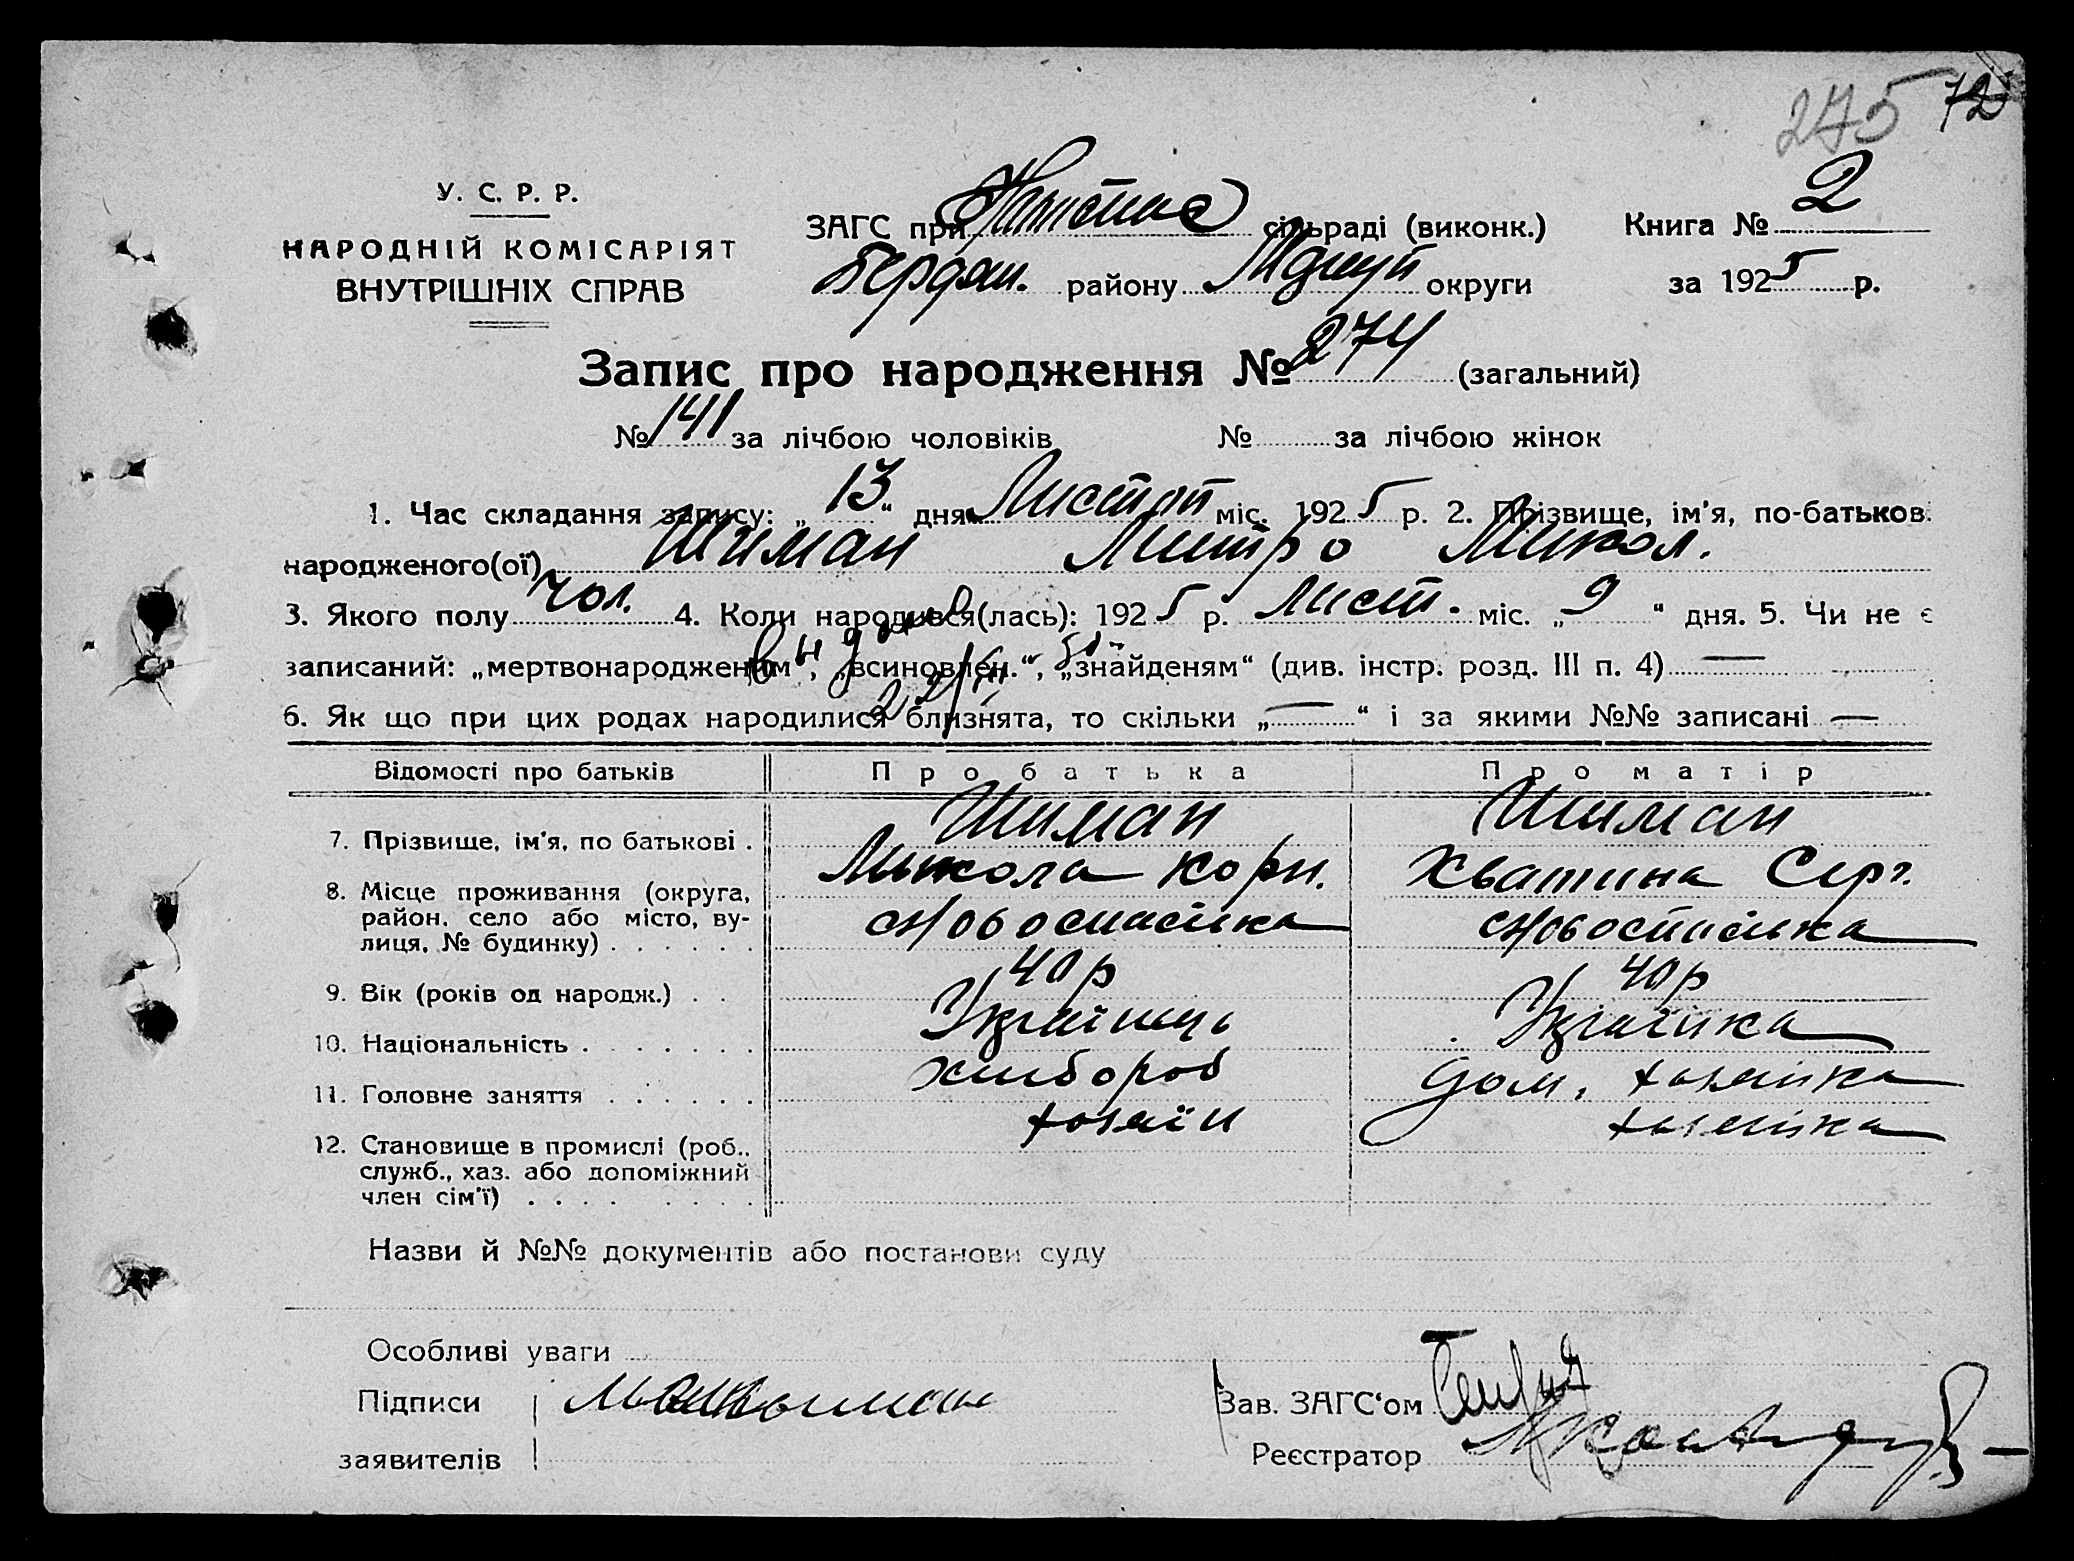 275 72
У. С. Р. Р.
НАРОДНІЙ КОМІСАРІЯТ
ВНУТРІШНІХ СПРАВ
ЗАГС при сільраді (виконк.) Книга № 2
Бердян. району округи за 1925 р.
Запис про народження № 274 (загальний)
№ 141 за лічбою чоловіків № за лічбою жінок
1. Час складання запису: „ 13 “ дня Листоп міс. 1925 р. 2. Прізвище, ім'я, по-батьков.
народженого(ої) Шиман Митро Микол.
3. Якого полу чол. 4. Коли народився(лась): 1925 р. Лист. міс. „ 9 “ дня. 5. Чи не є
записаний: „мертвонародженим“, „всиновлен.“, „знайденям“ (див. інстр. розд. III п. 4) —
6. Як що при цих родах народилися близнята, то скільки „—“ і за якими №№ записані —
Відомості про батьків Про батька Про матір
7. Прізвище, ім'я, по батькові . Шиман Шиман
Микола Корн. Хватина Серг.
8. Місце проживання (округа,
район, село або місто, ву-
лиця, № будинку) . . . . . . Новоспаська Новоспаська
9. Вік (років од народж.) . . 40 р 40 р
10. Національність . . . . . . . Українець Українка
11. Головне заняття . . . . . . Хлібороб дом. хазяйка
12. Становище в промислі (роб.. хазяїн хазяйка
служб., хаз. або допоміжний
член сім'ї) . . . . . . . .
Назви й №№ документів або постанови суду
Особливі уваги
Підписи
заявителів
Зав. ЗАГС'ом
Реєстратор